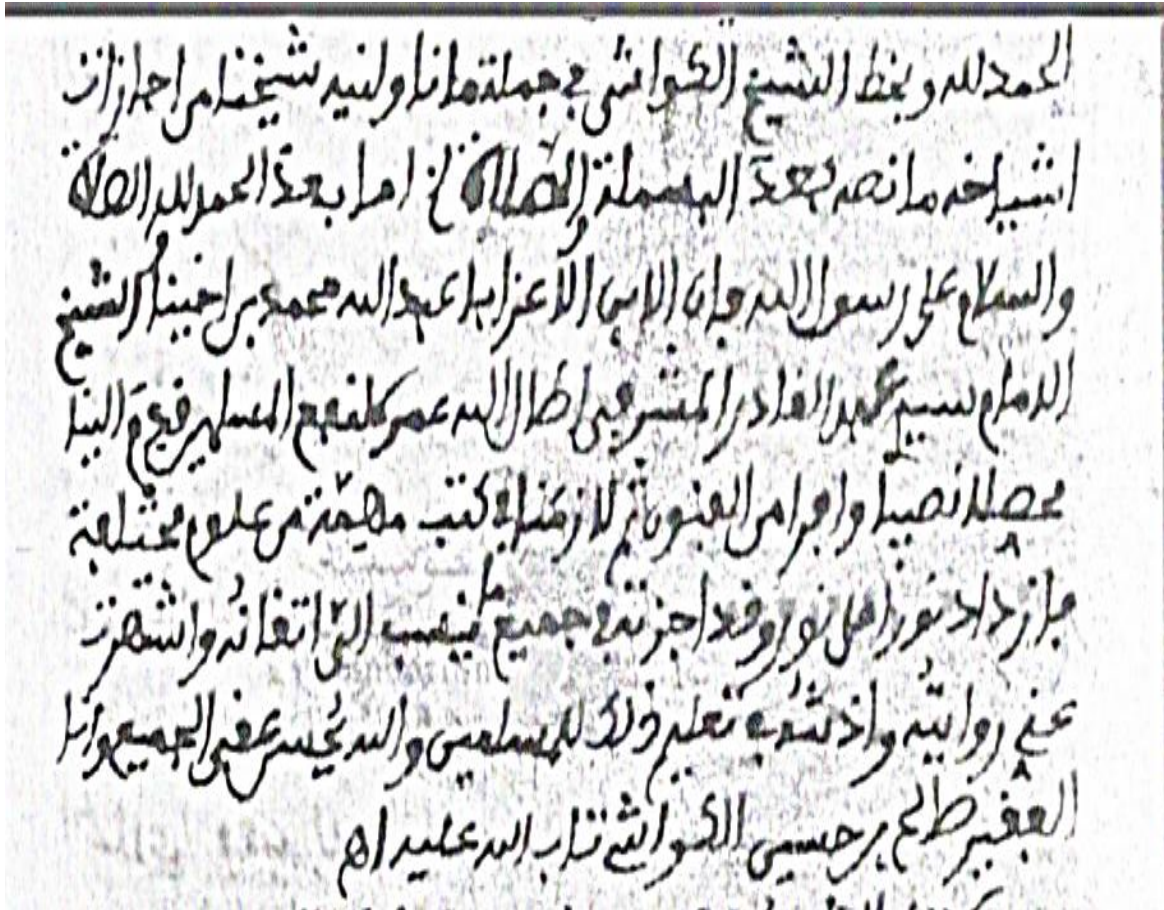 الحمد لله وبخط الشيخ الكواشي في جملة ما ناولنيه شيخنا من اجازات
اشياخه ما نصه بعد البسملة والصلاة الخ اما بعد الحمد لله والصلاة
والسلام على رسول الله فان الابن الاعز ابا عبد الله محمد بن اخينا الشيخ
الامام سيدي عبد القادر المشرفي اطال الله عمره لنفع المسلمين قدم الينا
محصلا نصيبا وافرا من الفنون ثم لازمنا في كتب مهمة من علوم مختلفة
فازداد نورا على نور وقد اجزته في جميع ما ينسب الي اتقانه واشتهرت
عني روايته واذنته في تعليم ذلك للمسلمين والله يحسن عقبى الجميع وانا
الفقير صالح بن حسين الكواشي تاب الله عليه اه